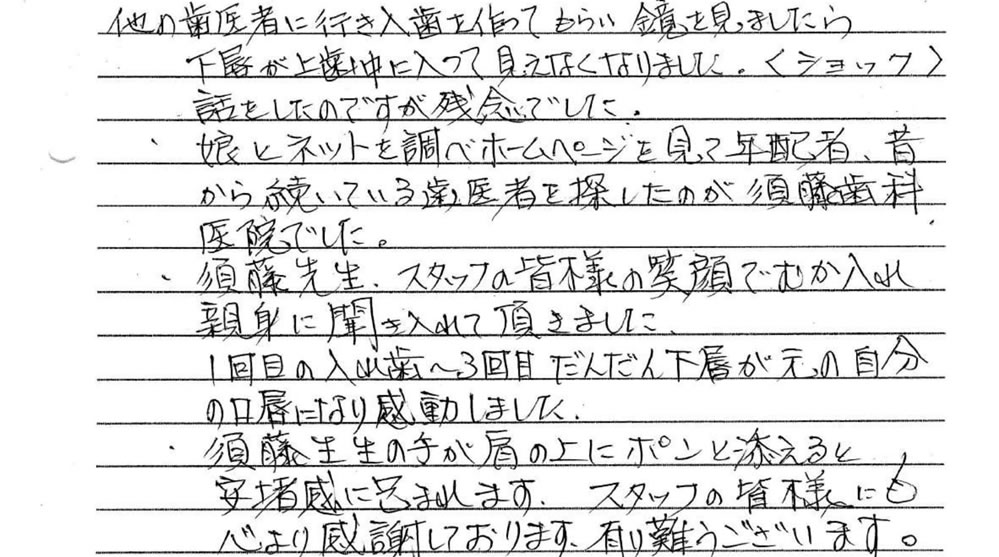 他の歯医者に行き入歯を作ってもらい鏡を見ましたら
下唇が上歯中に入って見えなくなりました。〈ショック〉
話をしたのですが残念でした。
・娘とネットを調べホームページを見て年配者、昔
から続いている歯医者を探したのが須藤歯科
医院でした。
・須藤先生、スタッフの皆様の笑顔でむか入れ
親身に聞き入れて頂きました、
1回目の入れ歯〜3回目だんだん下唇が元の自分
の口唇になり感動しました、
・須藤先生の手が肩の上にポンと添えると
安堵感に包まれます、スタッフの皆様にも
心より感謝しております、有り難うございます。